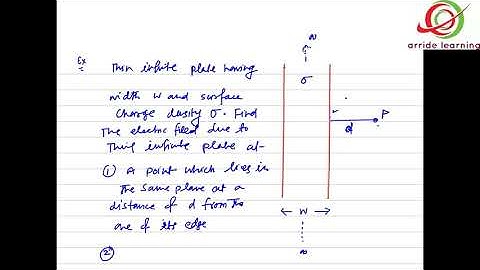 arride learning
Ex
Thin infinite plate having
width W and surface
charge density σ. Find
The electric field due to
Thin infinite plate at-
① A point which lies in
The same plane at a
distance of d from the
one of its edge
②
∞
σ
P
d
← W →
∞